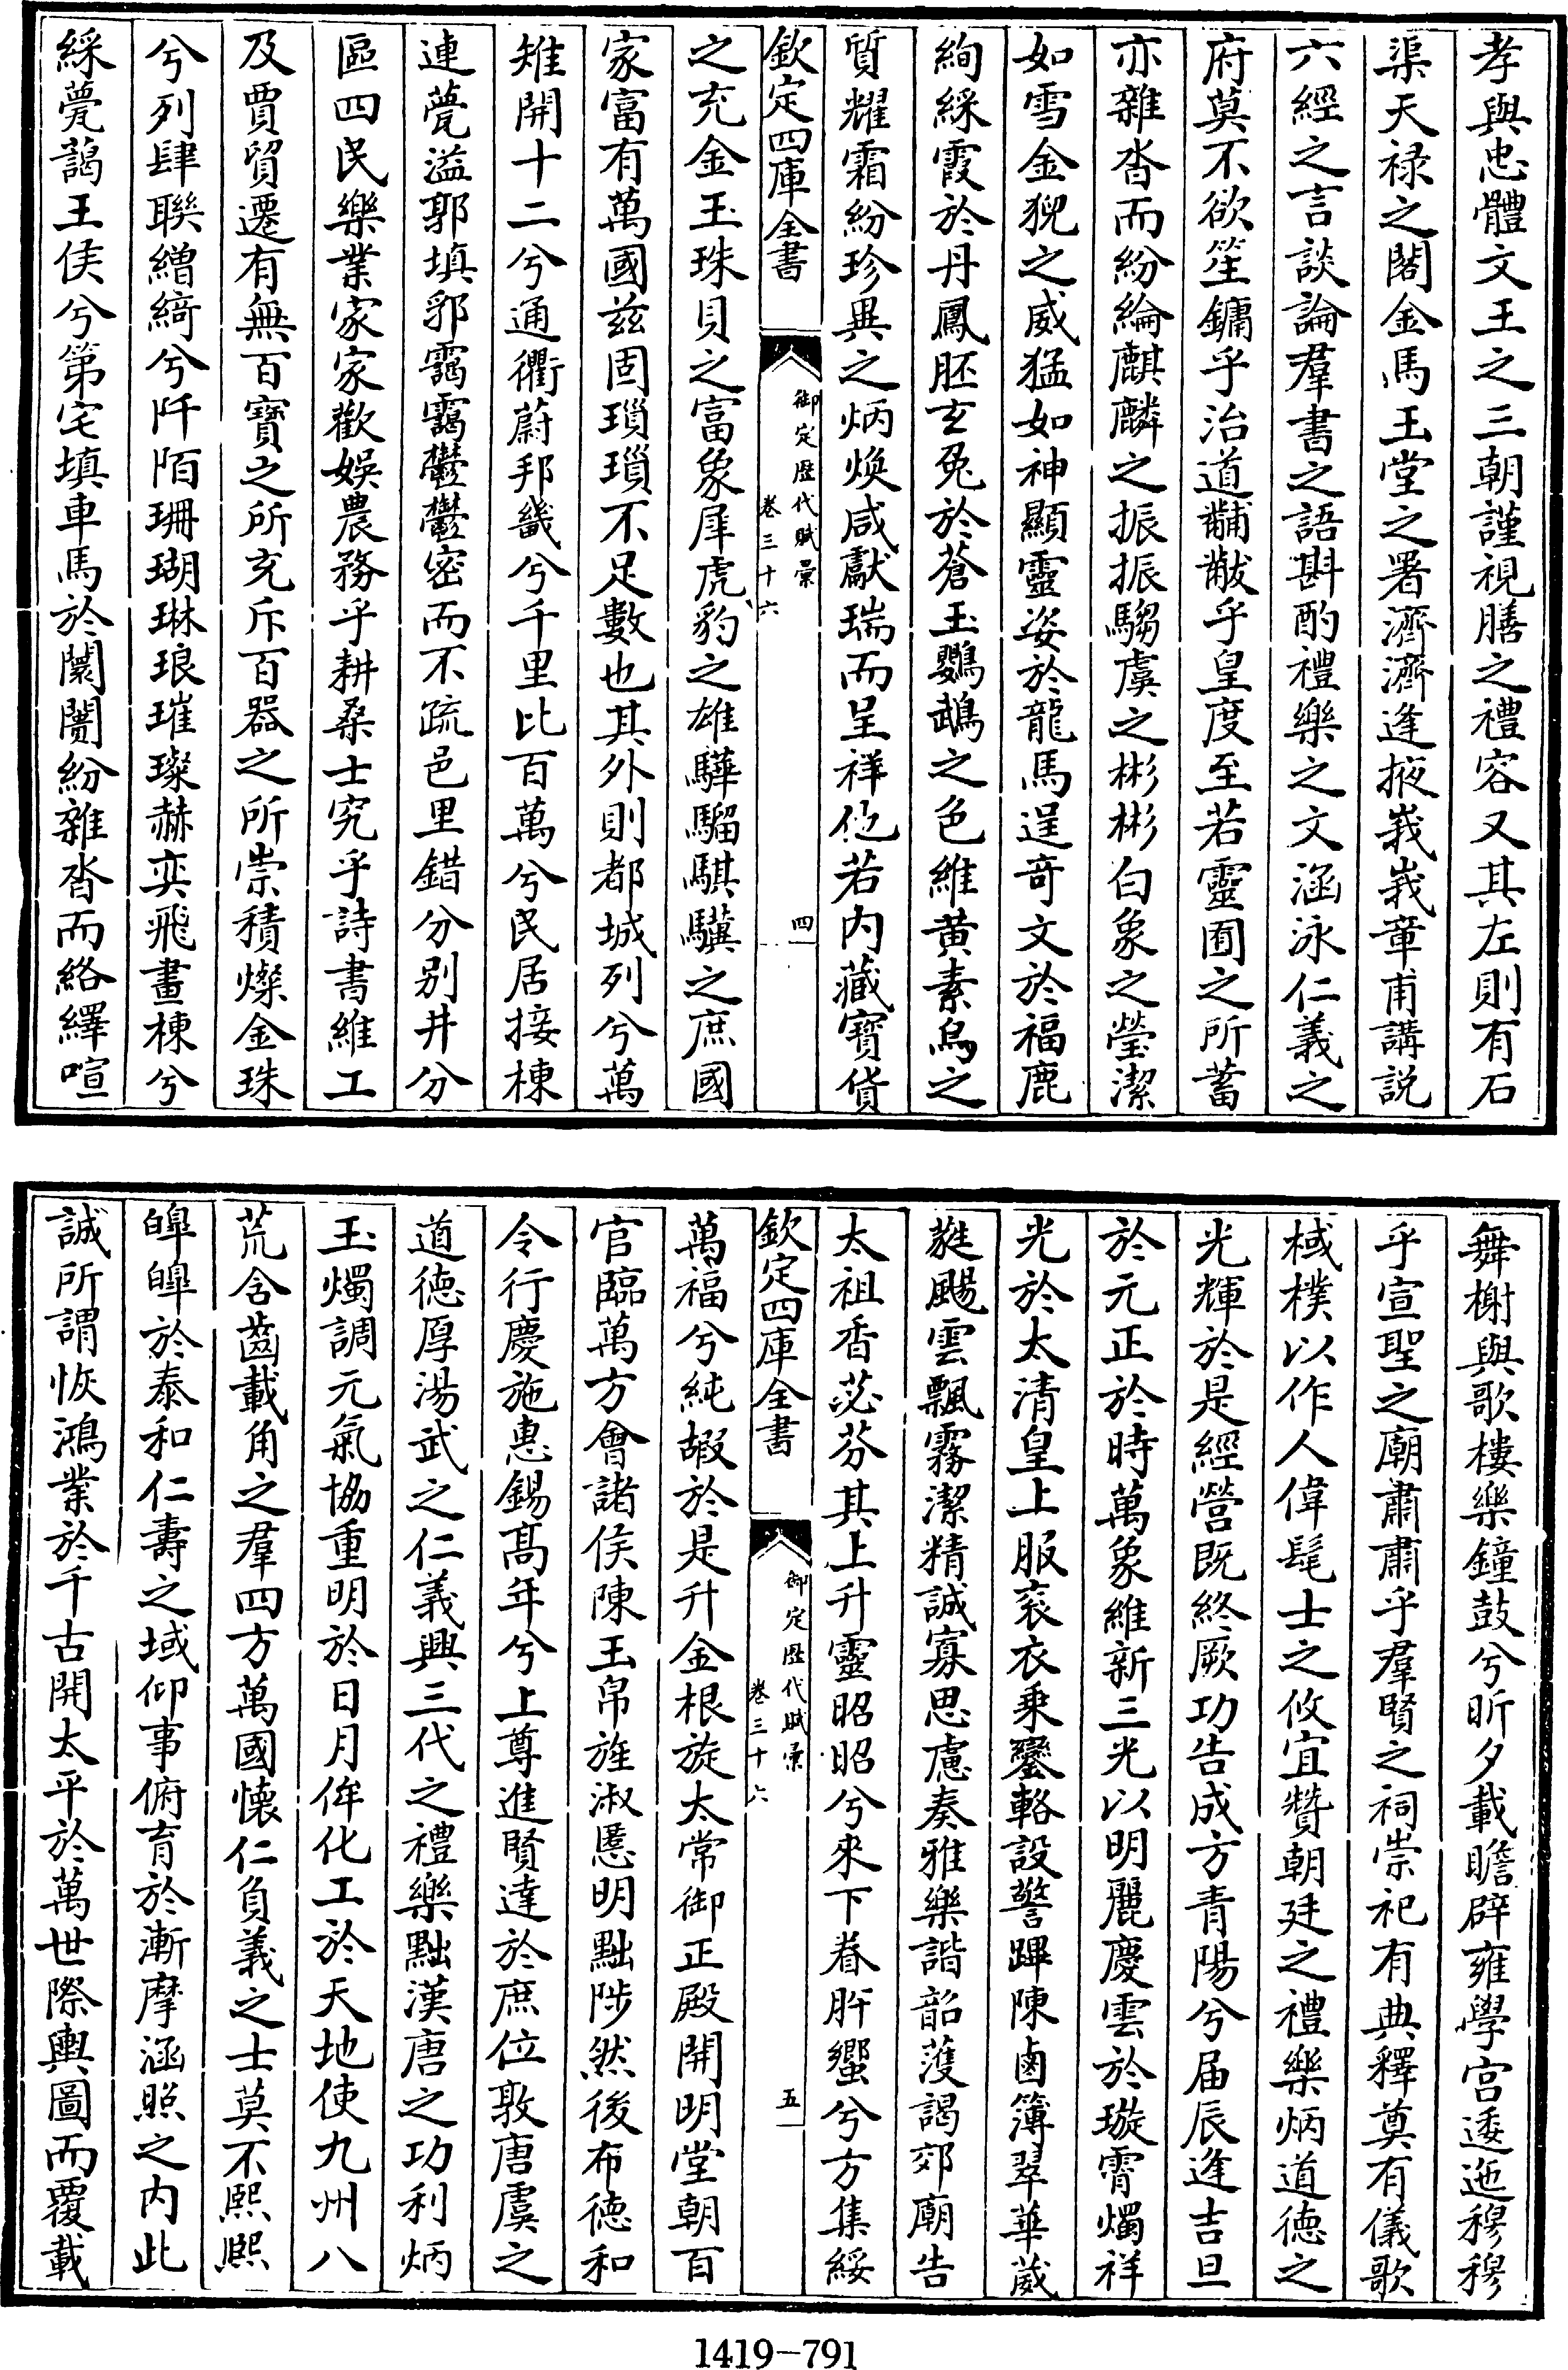 孝與忠體文王之三朝謹視膳之禮容又其左則有石
渠天禄之閣金馬玉堂之署濟濟逢掖峩峩章甫講説
六經之言談論羣書之語斟酌禮樂之文涵泳仁義之
府莫不欲笙鏞乎治道黼黻乎皇度至若靈囿之所蓄
亦雜沓而紛綸麒麟之振振騶虞之彬彬白象之瑩潔
如雪金猊之威猛如神顯靈姿於龍馬逞奇文於福鹿
絢綵霞於丹鳳胚玄兔於蒼玉鸚鵡之色維黄素烏之
質耀霜紛珍異之炳煥咸獻瑞而呈祥他若内藏寶貨
欽定四庫全書
御定歴代賦彙
卷三十六
四
之充金玉珠貝之富象犀虎豹之雄驊騮騏驥之庶國
家富有萬國兹固瑣瑣不足數也其外則都城列兮萬
雉開十二兮通衢蔚邦畿兮千里比百萬兮民居接棟
連甍溢郭填郛靄靄鬱鬱密而不疏邑里錯分别井分
區四民樂業家家歡娱農務乎耕桑士究乎詩書維工
及賈貿遷有無百寶之所充斥百器之所崇積燦金珠
兮列肆聯繒綺兮阡陌珊瑚琳琅璀璨赫奕飛畫棟兮
綵甍藹王侯兮第宅填車馬於闤闠紛雜沓而絡繹喧
舞榭與歌樓樂鐘鼓兮昕夕載瞻辟雍學宫逶迤穆穆
乎宣聖之廟肅肅乎羣賢之祠崇祀有典釋奠有儀歌
棫樸以作人偉髦士之攸宜贊朝廷之禮樂炳道德之
光輝於是經營既終厥功告成方青陽兮届辰逢吉旦
於元正於時萬象維新三光以明麗慶雲於璇霄燭祥
光於太清皇上服衮衣乗鑾輅設警蹕陳鹵簿翠華葳
蕤颺雲飄霧潔精誠寡思慮奏雅樂諧韶頀謁郊廟告
太祖香苾芬其上升靈昭昭兮來下眷肸蠁兮方集綏
欽定四庫全書
御定歴代賦彙
卷三十六
五
萬福兮純嘏於是升金根旋太常御正殿開明堂朝百
官臨萬方會諸侯陳玉帛旌淑慝明黜陟然後布德和
令行慶施惠錫髙年兮上尊進賢達於庶位敦唐虞之
道徳厚湯武之仁義興三代之禮樂黜漢唐之功利炳
玉燭調元氣協重明於日月侔化工於天地使九州八
荒含齒載角之羣四方萬國懐仁負義之士莫不熙熙
皥皥於泰和仁壽之域仰事俯育於漸摩涵照之内此
誠所謂恢鴻業於千古開太平於萬世際輿圖而覆載
1419-791